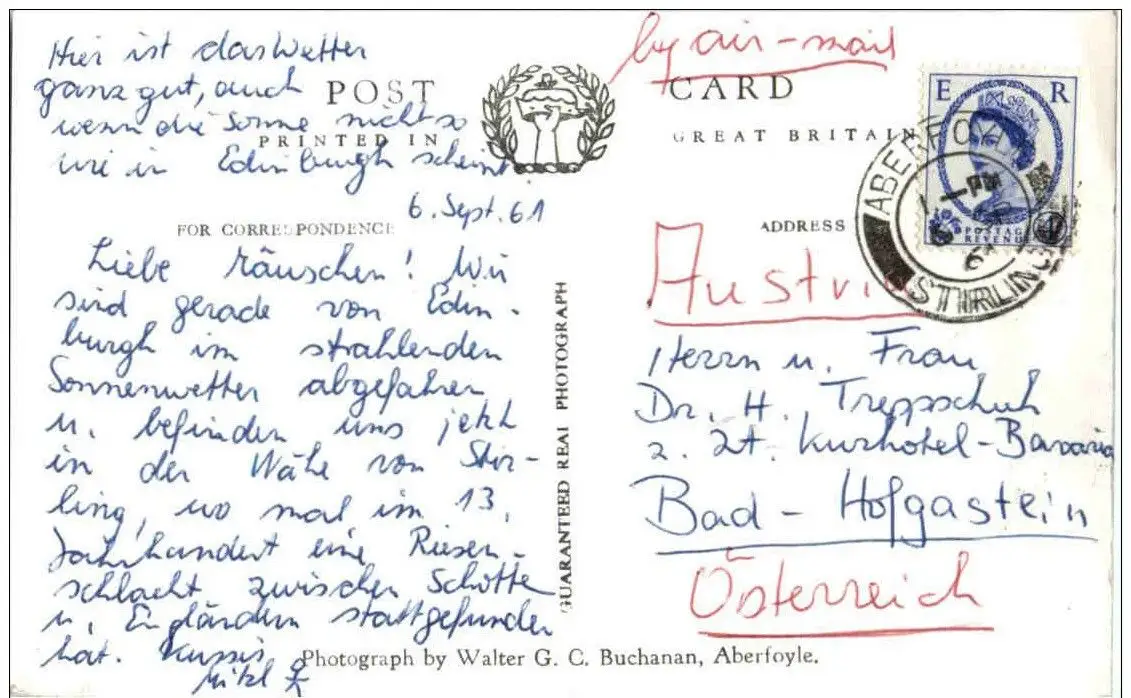 Hier ist das Wetter
ganz gut, auch
wenn die Sonne nicht so
wie in Edinburgh scheint
6. Sept. 61
POST CARD
PRINTED IN GREAT BRITAIN
FOR CORRESPONDENCE
Liebe
! Wir
sind gerade von Edin-
burgh im strahlenden
Sonnenwetter abgefahren
u. befinden uns jetzt
in der Nähe von Stir-
ling, wo mal im 13.
Jahrhundert eine Riesen-
schlacht zwischen Schotten
u. Engländern stattgefunden
hat. Kussis
GUARANTEED REAL PHOTOGRAPH
by air-mail
E R
POSTAGE
REVENUE
ABERFOYLE
1 - PM
STIRLING
ADDRESS
Austria
Herrn u. Frau
Dr. H. Treppschuh
z. Zt. Kurhotel-Bavaria
Bad-Hofgastein
Österreich
Photograph by Walter G. C. Buchanan, Aberfoyle.